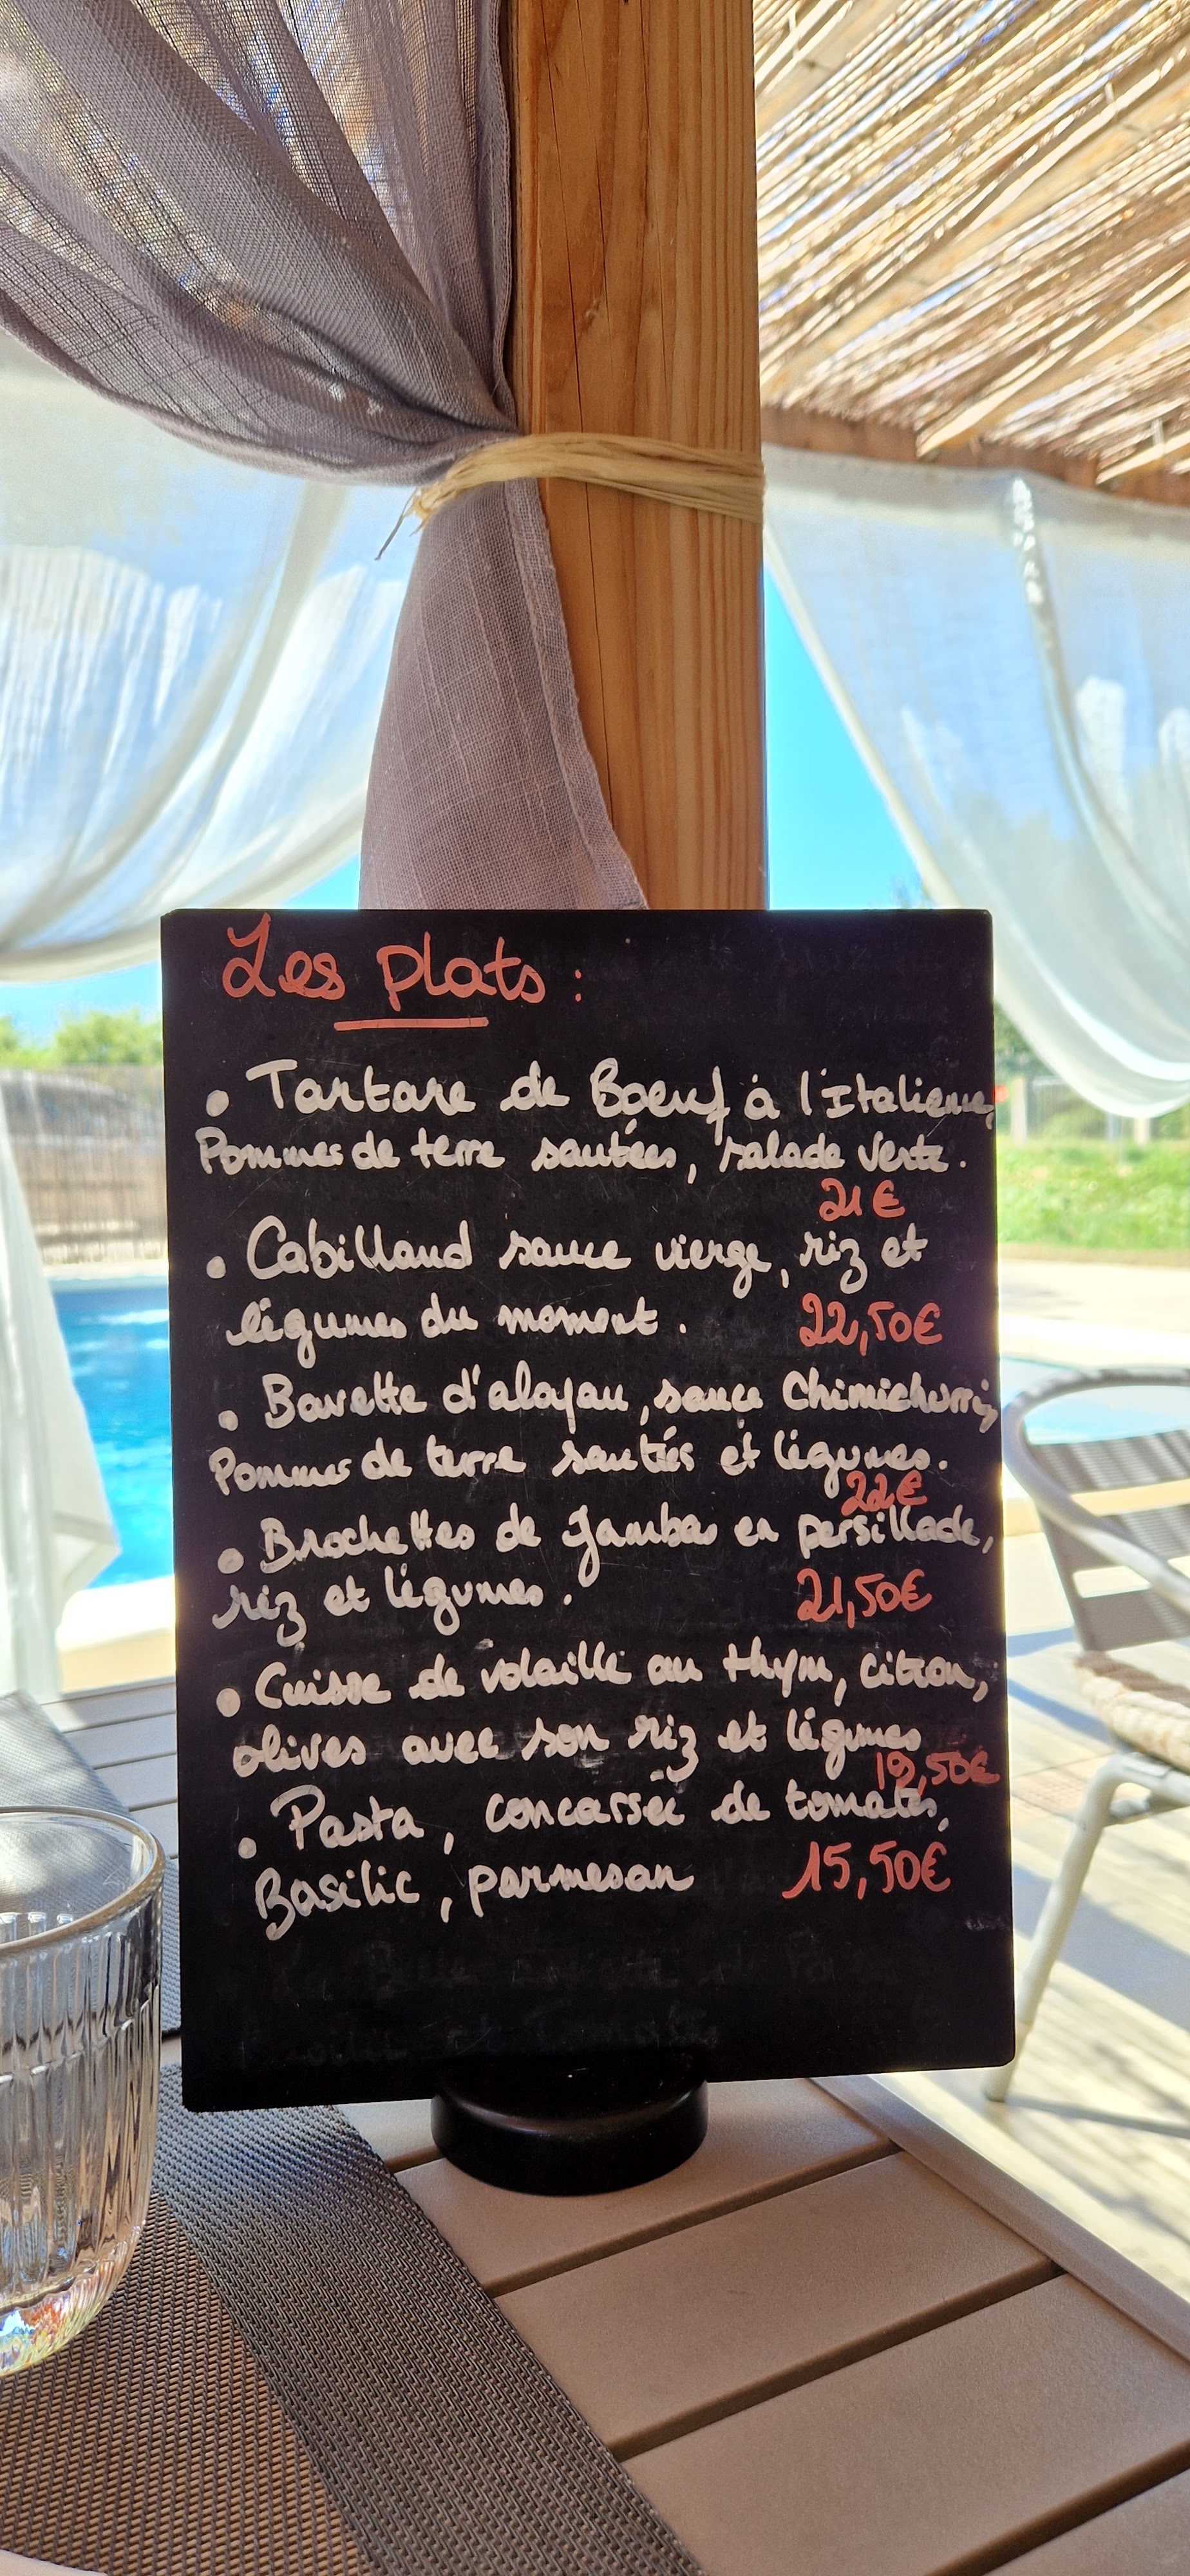 Les plats :
• Tartare de Boeuf à l'Italienne,
Pommes de terre sautées, salade verte.
21€
• Cabillaud sauce vierge, riz et
légumes du moment. 22,50€
• Bavette d'aloyau, sauce Chimichurri,
Pommes de terre sautés et légumes.
22€
• Brochettes de gambas en persillade,
riz et légumes. 21,50€
• Cuisse de volaille au thym, citron,
olives avec son riz et légumes
19,50€
• Pasta, concassée de tomates,
Basilic, parmesan 15,50€